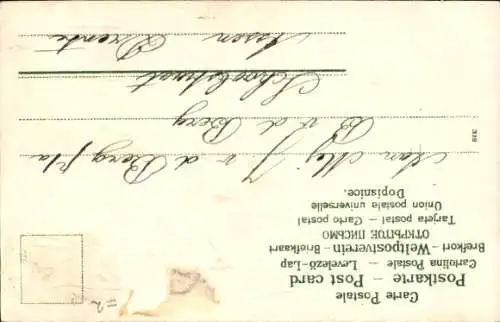 Carte Postale
Postkarte – Post card
Cartolina Postale – Levelező-Lap
Brefkort – Weltpostverein – Briefkaart
ОТКРЫТОЕ ПИСЬМО
Tarjeta postal – Carto postal
Union postale universelle
Dopisnice.
Aan Mej J v d Berg p/a
B v d Berg
Schoolstraat
Assen Drente
=2